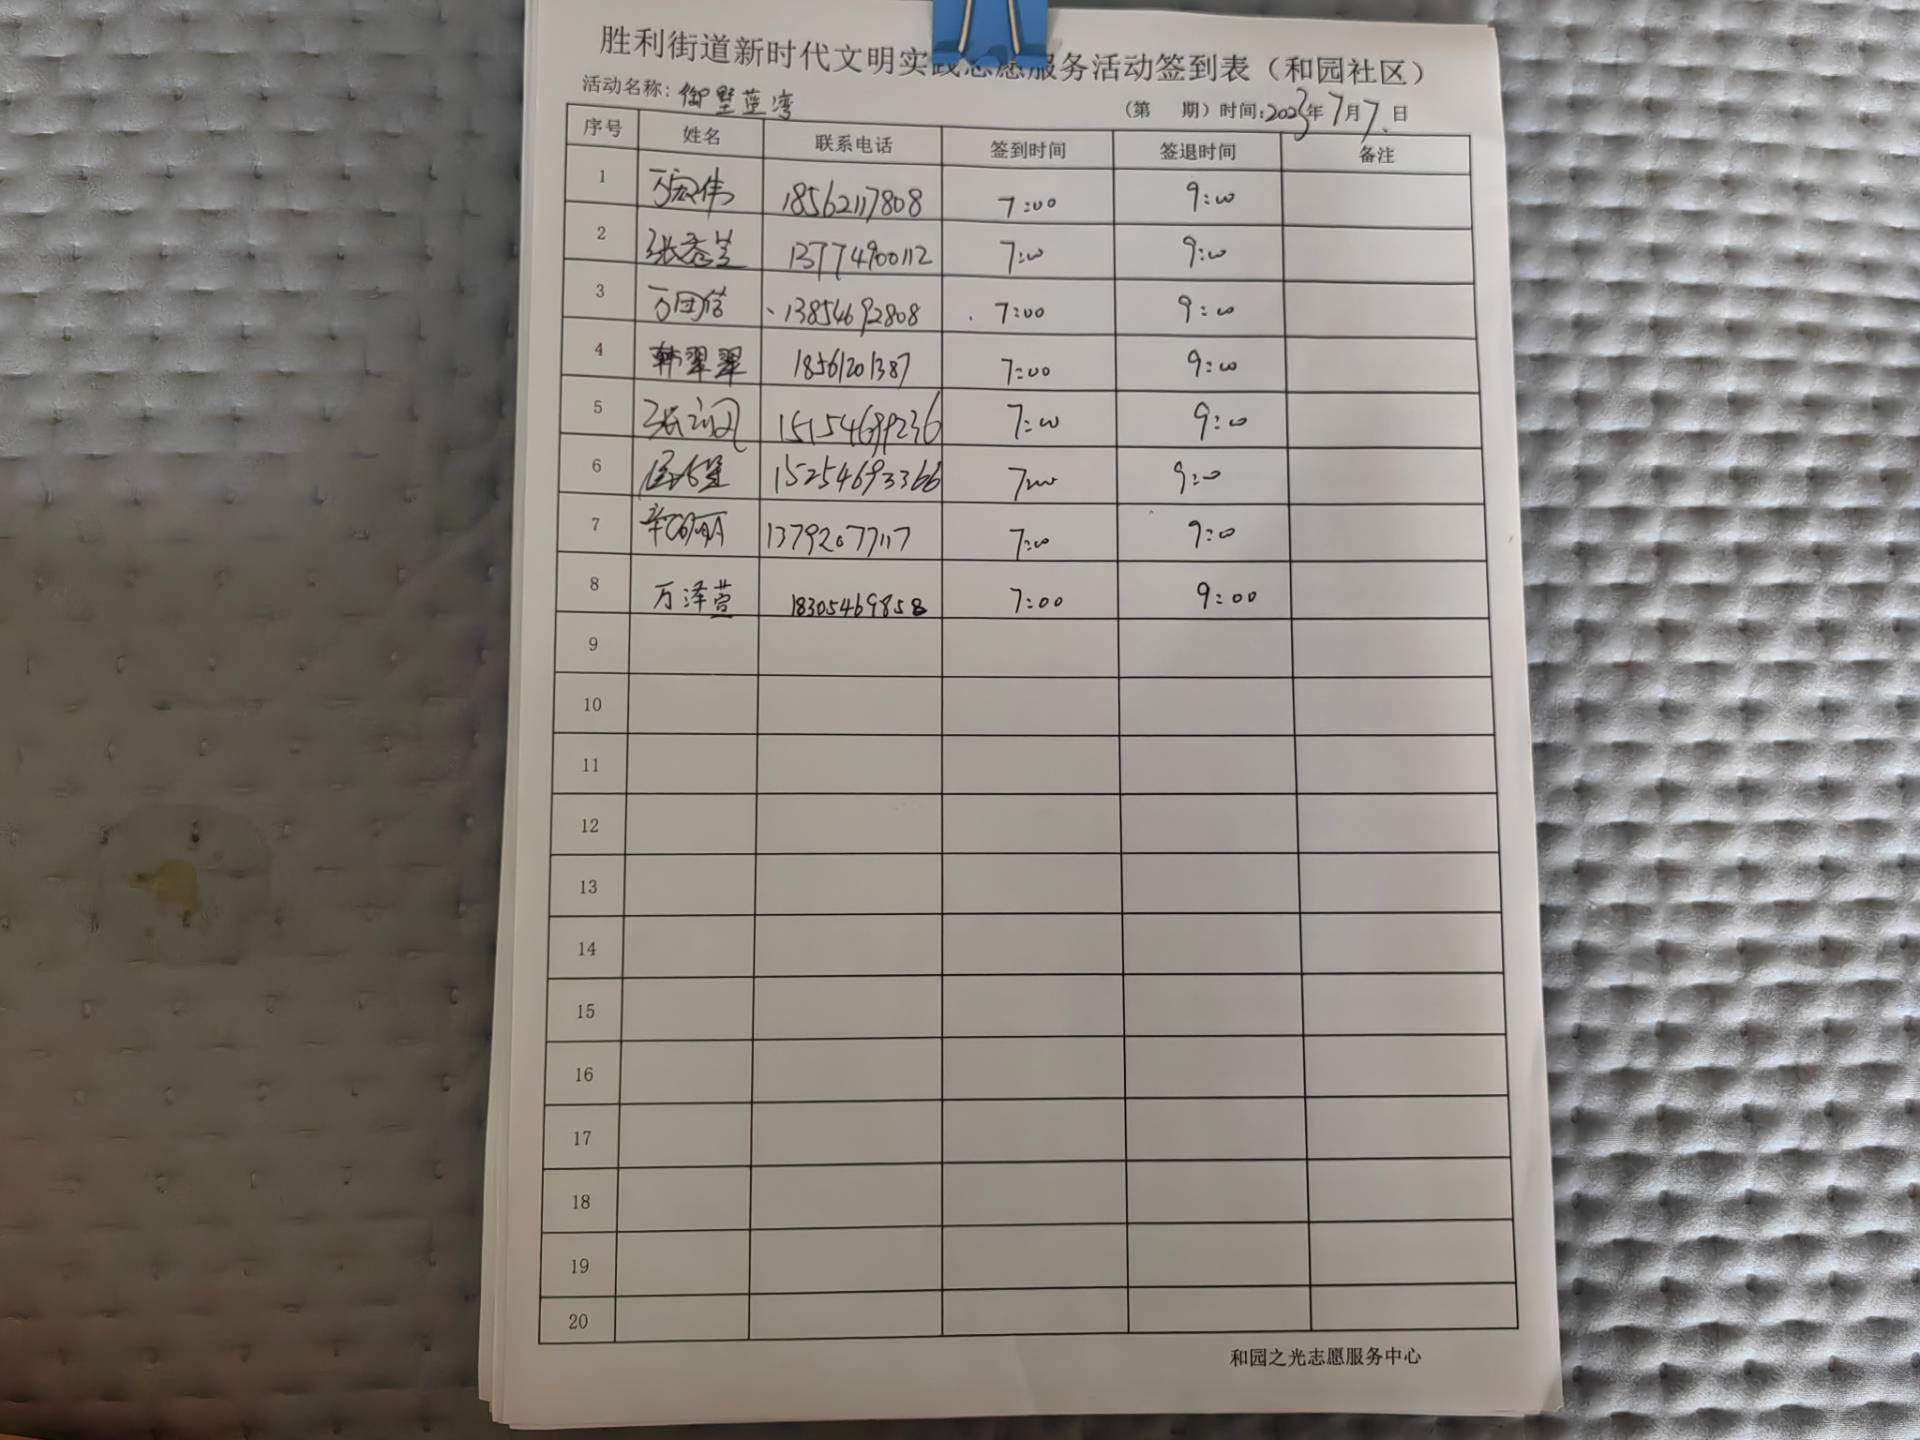 胜利街道新时代文明实践志愿服务活动签到表（和园社区）
活动名称：御墅蓝湾 （第 期）时间：2023年7月7日
序号 姓名 联系电话 签到时间 签退时间 备注
1 万宏伟 18562117808 7:00 9:00
2 张秀兰 13774900112 7:00 9:00
3 万团信 13854692808 7:00 9:00
4 韩翠翠 18561201387 7:00 9:00
5 张 15154699236 7:00 9:00
6 15254693366 7:00 9:00
7 13792077117 7:00 9:00
8 万泽萱 18305469858 7:00 9:00
9
10
11
12
13
14
15
16
17
18
19
20
和园之光志愿服务中心